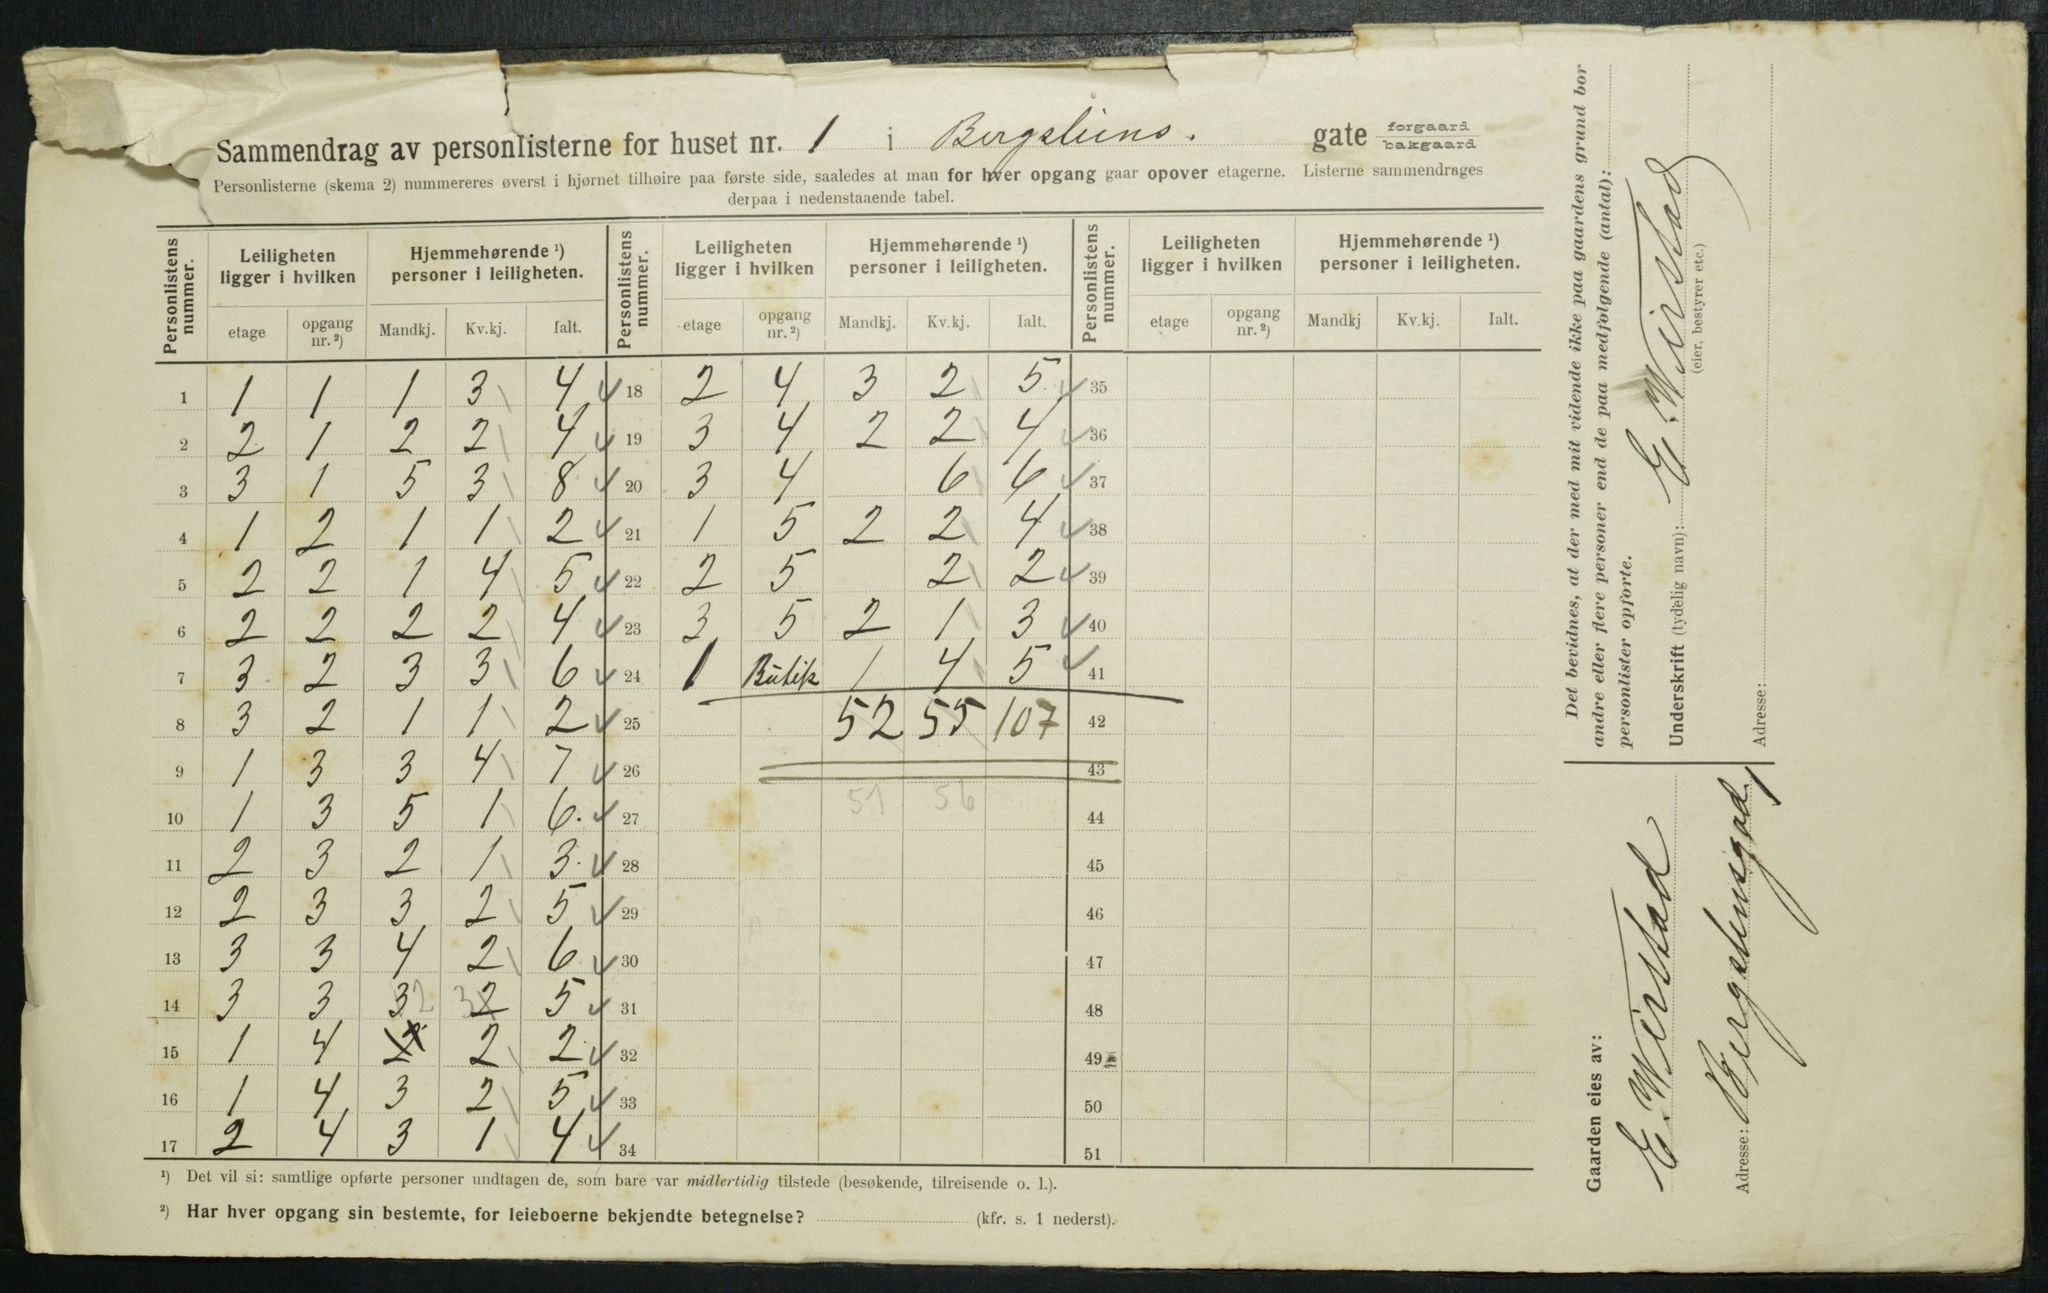 Sammendrag av personlisterne for huset nr. 1 i Bergsliens. gate forgaard bakgaard
Personlisterne (skema 2) nummereres øverst i hjørnet tilhøire paa første side, saaledes at man for hver opgang gaar opover etagerne. Listerne sammendrages
derpaa i nedenstaaende tabel.
Personlistens nummer. Leiligheten ligger i hvilken Hjemmehørende ¹) personer i leiligheten. Personlistens nummer. Leiligheten ligger i hvilken Hjemmehørende ¹) personer i leiligheten. Personlistens nummer. Leiligheten ligger i hvilken Hjemmehørende ¹) personer i leiligheten.
etage opgang nr. ²) Mandkj. Kv.kj. Ialt. etage opgang nr. ²) Mandkj. Kv.kj. Ialt. etage opgang nr. ²) Mandkj Kv.kj. Ialt.
1 1 1 1 3 4 ✓ 18 2 4 3 2 5 ✓ 35
2 2 1 2 2 4 ✓ 19 3 4 2 2 4 ✓ 36
3 3 1 5 3 8 ✓ 20 3 4 6 6 ✓ 37
4 1 2 1 1 2 ✓ 21 1 5 2 2 4 ✓ 38
5 2 2 1 4 5 ✓ 22 2 5 2 2 ✓ 39
6 2 2 2 2 4 ✓ 23 3 5 2 1 3 ✓ 40
7 3 2 3 3 6 ✓ 24 1 Butik 1 4 5 ✓ 41
8 3 2 1 1 2 ✓ 25 52 55 107 42
9 1 3 3 4 7 ✓ 26 43
10 1 3 5 1 6. ✓ 27 51 56 44
11 2 3 2 1 3. ✓ 28 45
12 2 3 3 2 5 ✓ 29 46
13 3 3 4 2 6 ✓ 30 47
14 3 3 3 2 3 2 5 ✓ 31 48
15 1 4 2 2 2 ✓ 32 49
16 1 4 3 2 5 ✓ 33 50
17 2 4 3 1 4 ✓ 34 51
¹) Det vil si: samtlige opførte personer undtagen de, som bare var midlertidig tilstede (besøkende, tilreisende o. l.).
²) Har hver opgang sin bestemte, for leieboerne bekjendte betegnelse? (kfr. s. 1 nederst).
Det bevidnes, at der med mit vidende ikke paa gaardens grund bor
andre eller flere personer end de paa medfølgende (antal):
personlister opførte.
Underskrift (tydelig navn): E. Wirstad
(eier, bestyrer etc.)
Adresse:
Gaarden eies av:
E. Wirstad
Adresse: Bergsliensgad. 1